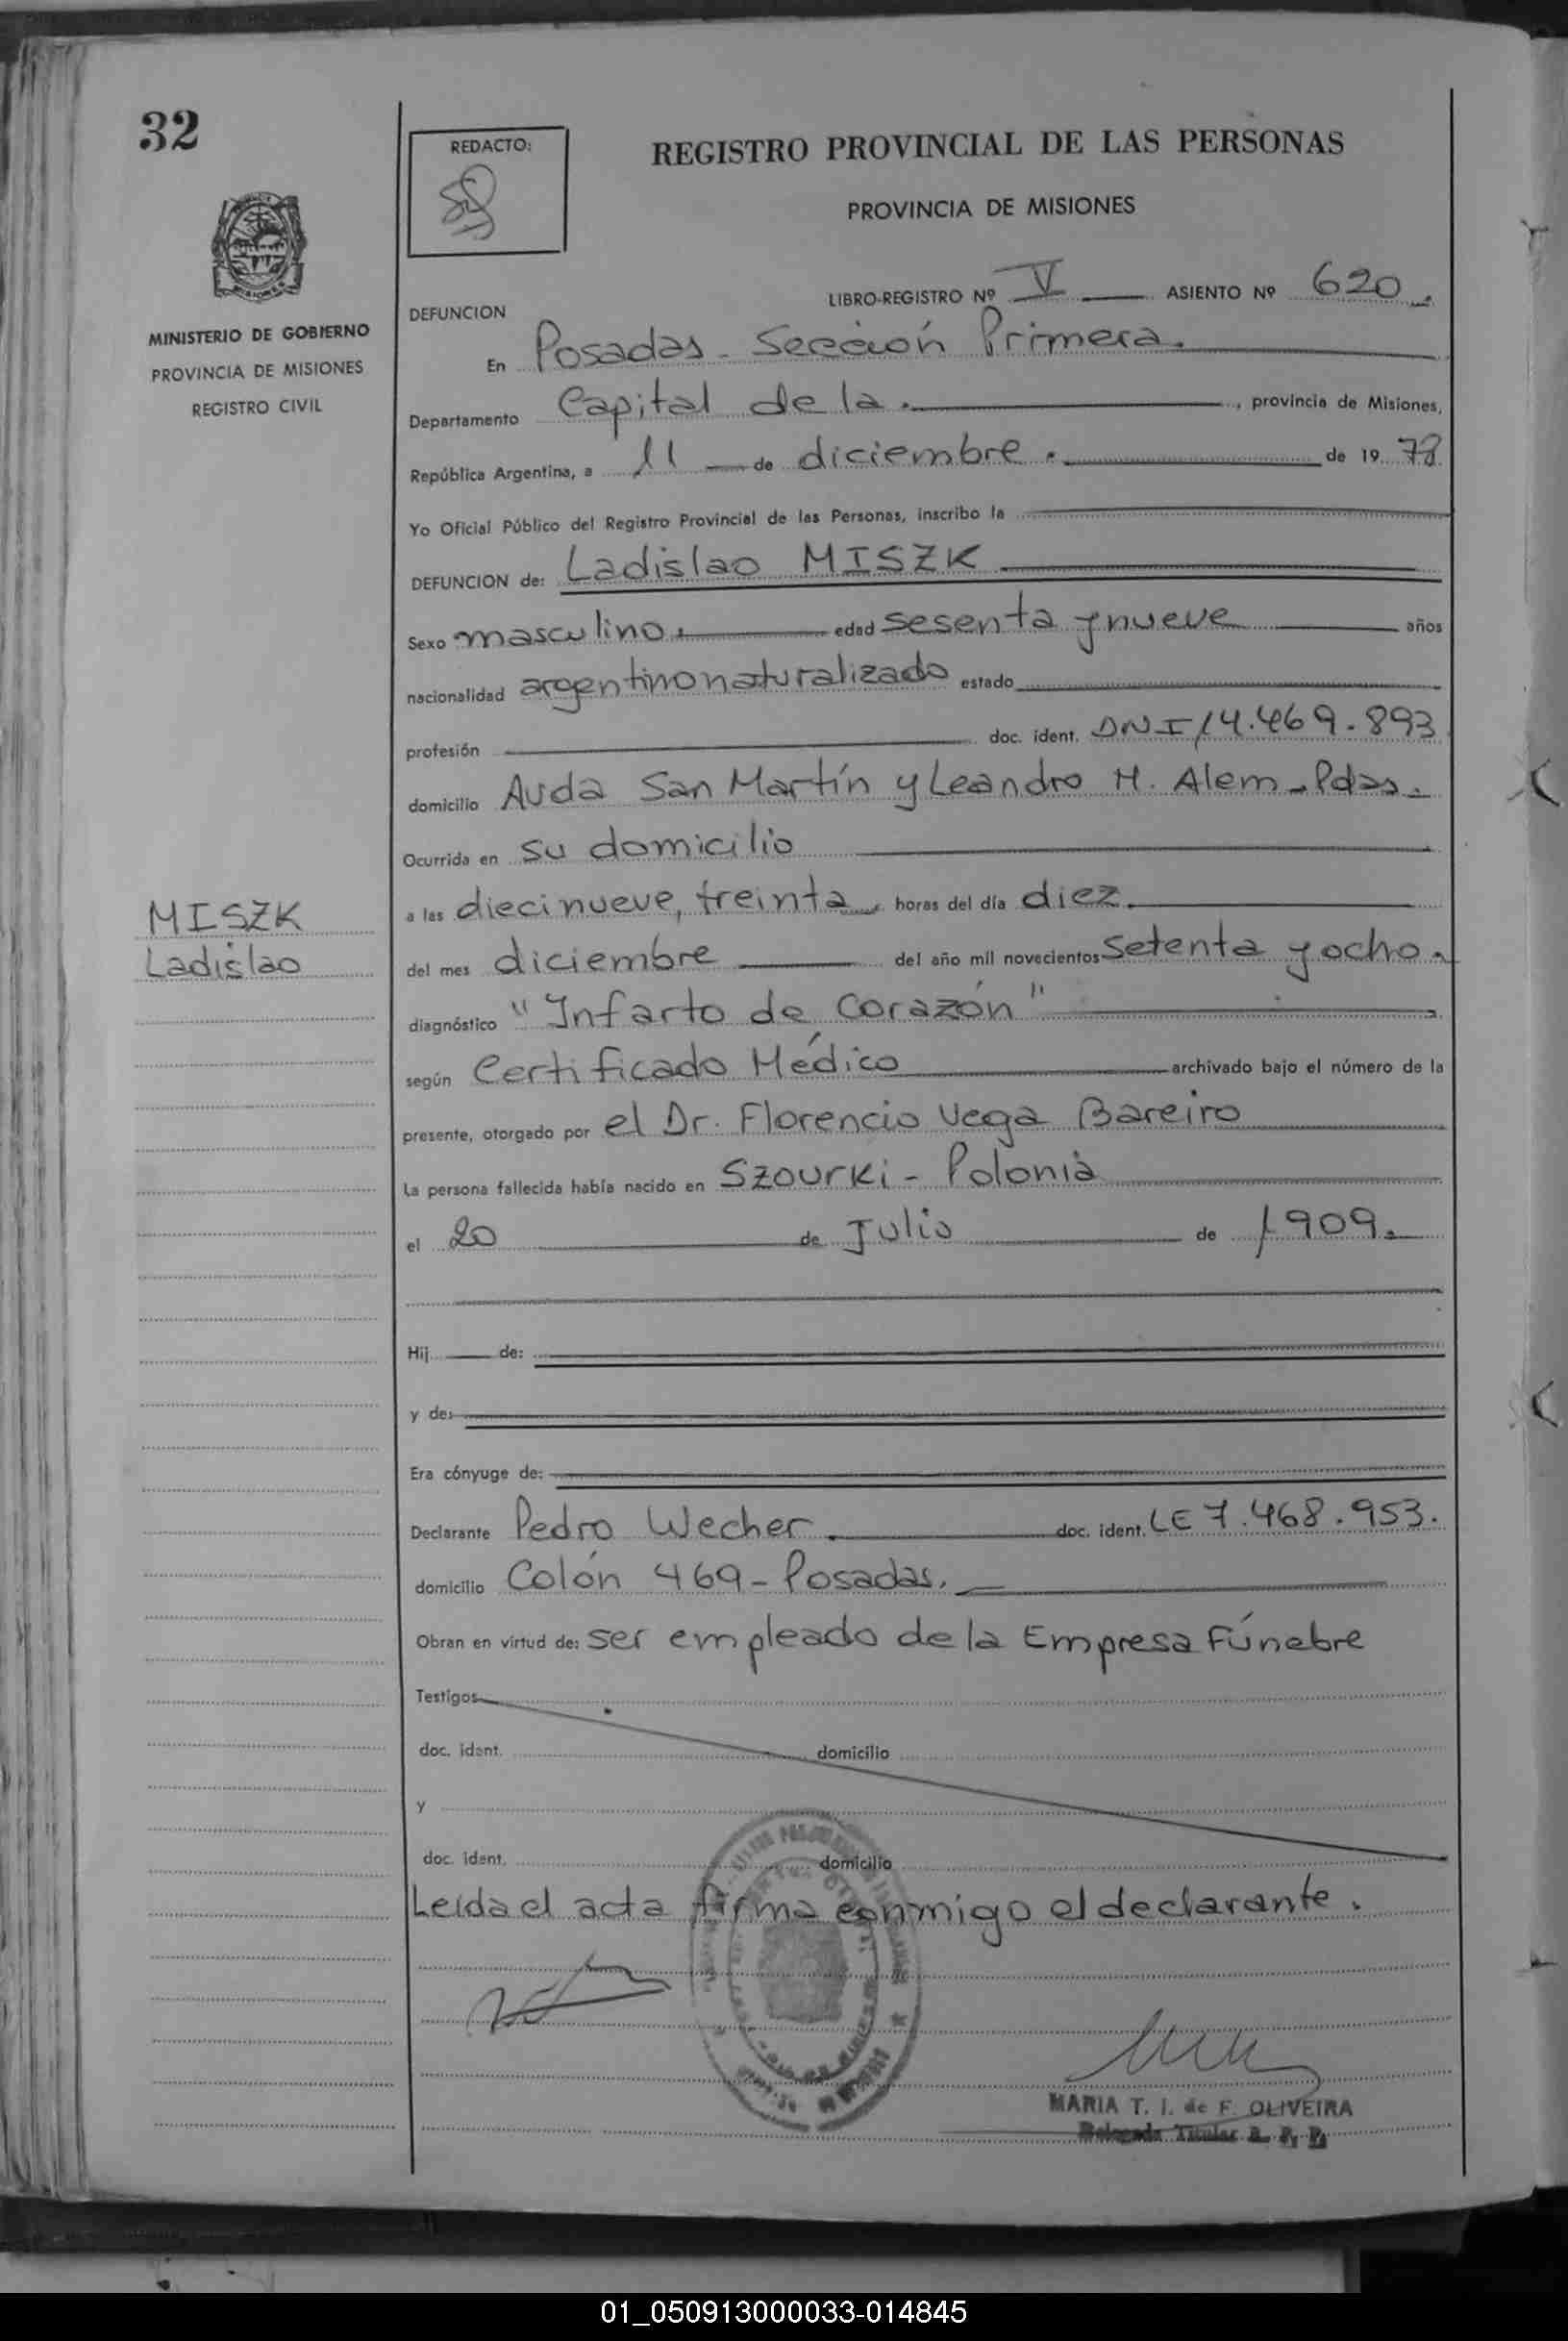 32
REDACTO:
REGISTRO PROVINCIAL DE LAS PERSONAS
PROVINCIA DE MISIONES
MISIONES
MINISTERIO DE GOBIERNO
PROVINCIA DE MISIONES
REGISTRO CIVIL
LIBRO-REGISTRO Nº V ASIENTO Nº 620.
DEFUNCION
En Posadas - Sección Primera.
Departamento Capital de la., provincia de Misiones,
República Argentina, a 11 de diciembre. de 19 78
Yo Oficial Público del Registro Provincial de las Personas, inscribo la
DEFUNCION de: Ladislao MISZK
Sexo masculino. edad sesenta y nueve años
nacionalidad argentino naturalizado estado
profesión doc. ident. DNI 14.469.893
domicilio Avda San Martín y Leandro H. Alem - Pdas.
Ocurrida en su domicilio
a las diecinueve, treinta, horas del día diez.
del mes diciembre del año mil novecientos setenta y ocho.
diagnóstico "Infarto de Corazón"
según Certificado Médico archivado bajo el número de la
presente, otorgado por el Dr. Florencio Vega Bareiro
La persona fallecida había nacido en Szourki - Polonia
el 20 de Julio de 1909.
MISZK
Ladislao
Hij de:
y de:
Era cónyuge de:
Declarante Pedro Wecher. doc. ident. LE 7.468.953.
domicilio Colón 469 - Posadas.
Obran en virtud de: ser empleado de la Empresa Fúnebre
Testigos
doc. ident. domicilio
y
doc. ident. domicilio
Leída el acta firma conmigo el declarante.
MARIA T. I. de F. OLIVEIRA
Delegada Titular R. P. P.
01_050913000033-014845